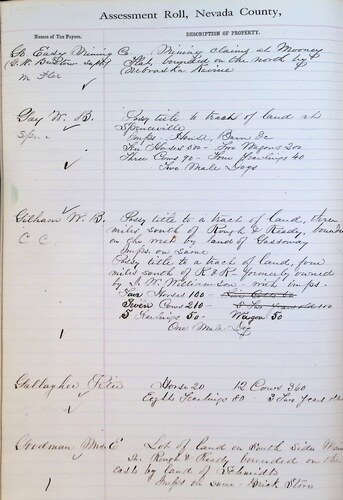 Assessment Roll, Nevada County,
Names of Tax Payers.
DESCRIPTION OF PROPERTY.
Mining Co Mining claims at Mooney
Flat, bounded on the north by
Nebraska Ravine
Gay W. B. Possy title to tract of land at
Spenceville
Imps - House Barn &c
Horses 300 - Two Wagons 200
Three Cows 90 - Four Yearlings 40
Two Male Dogs
Gilham W. B. Possy title to a tract of land, three
C C. miles south of Rough & Ready, bounded
on the west by land of Gassaway
Imps. on same
Possy title to a tract of land, four
miles south of R & R formerly owned
by J. W. Williamson - with imps.
Four Horses 100 -
Seven Cows 210 -
5 Yearlings 50 - Wagon 50
One Male Dog
1
Gallagher Peter Horse 20 12 Cows 360
Eight Yearlings 80 3 Two Years
1
Goodman Lot of land on South Side Main
St. Rough & Ready bounded on the
east by land of Schmidt
1 Imps on same - Brick Store